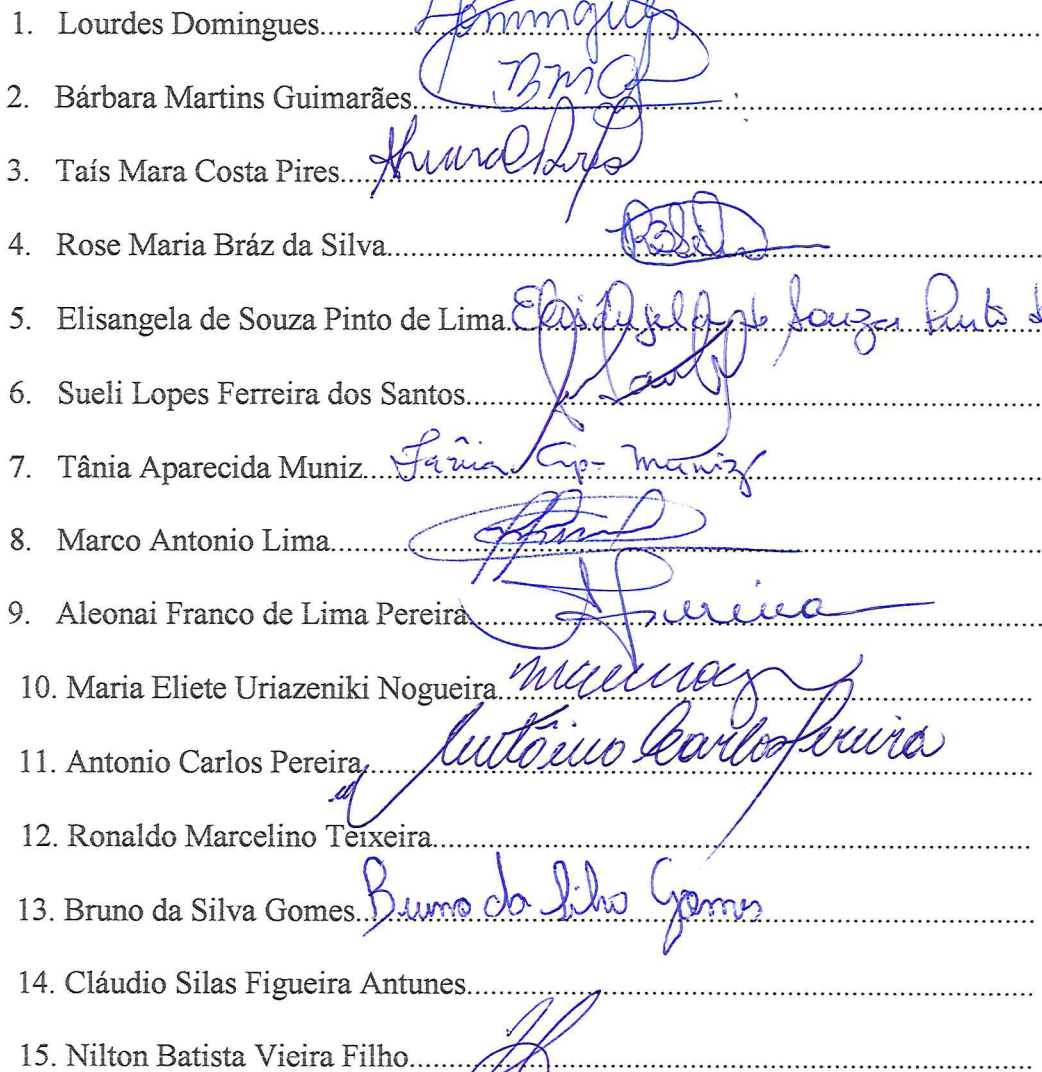 1. Lourdes Domingues.......... Domingues
2. Bárbara Martins Guimarães.......... BMG
3. Taís Mara Costa Pires..........
4. Rose Maria Bráz da Silva.......... RBSilva
5. Elisangela de Souza Pinto de Lima.. Elisangela de Souza Pinto
6. Sueli Lopes Ferreira dos Santos..........
7. Tânia Aparecida Muniz.... Tânia Ap. Muniz
8. Marco Antonio Lima..........
9. Aleonai Franco de Lima Pereira.......... Pereira
10. Maria Eliete Uriazeniki Nogueira..........
11. Antonio Carlos Pereira.......... Antônio Carlos Pereira
12. Ronaldo Marcelino Teixeira..........
13. Bruno da Silva Gomes.. Bruno da Silva Gomes
14. Cláudio Silas Figueira Antunes..........
15. Nilton Batista Vieira Filho..........